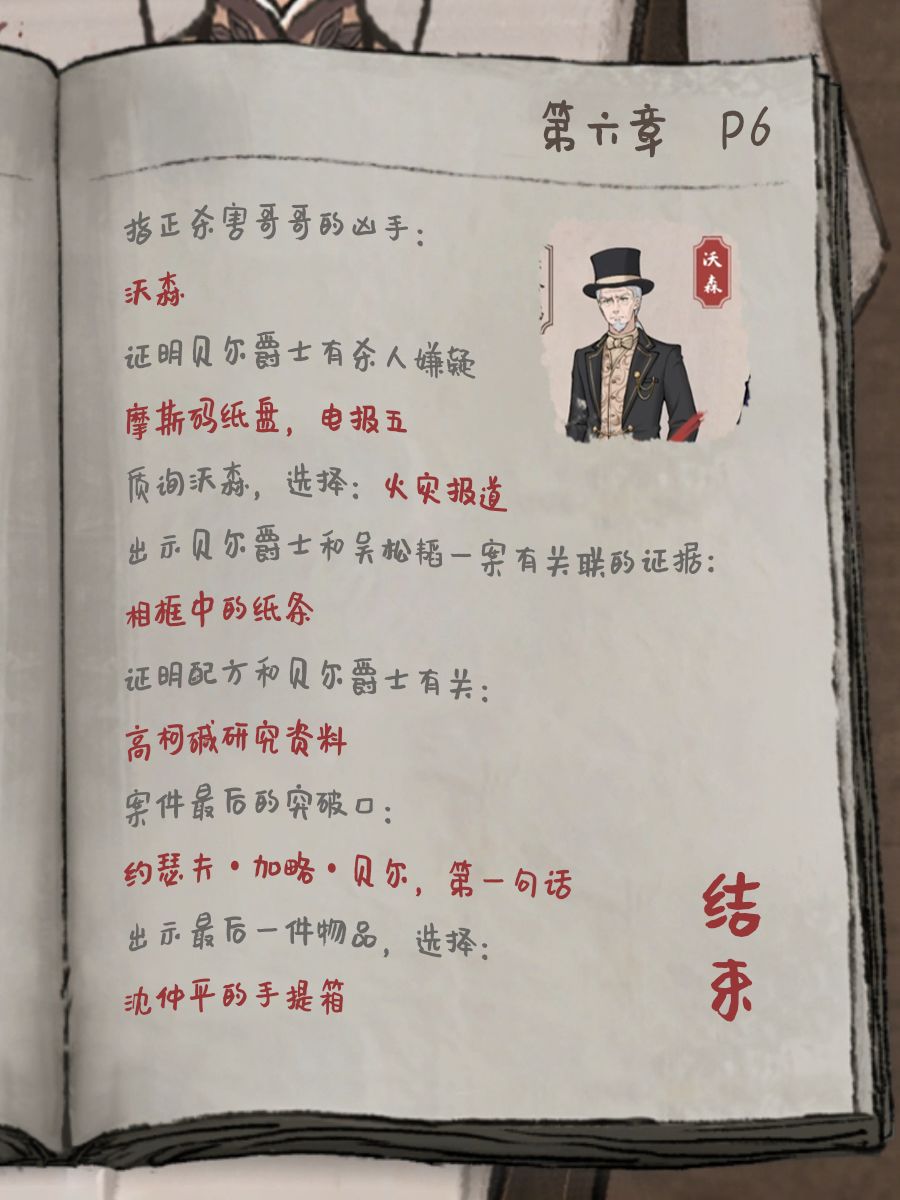 第六章 P6
指正杀害哥哥的凶手：
沃森
沃森
证明贝尔爵士有杀人嫌疑
摩斯码纸盘，电报五
质询沃森，选择：火灾报道
出示贝尔爵士和吴松韬一案有关联的证据：
相框中的纸条
证明配方和贝尔爵士有关：
高柯碱研究资料
案件最后的突破口：
约瑟夫·加略·贝尔，第一句话
出示最后一件物品，选择：
沈仲平的手提箱
结
束